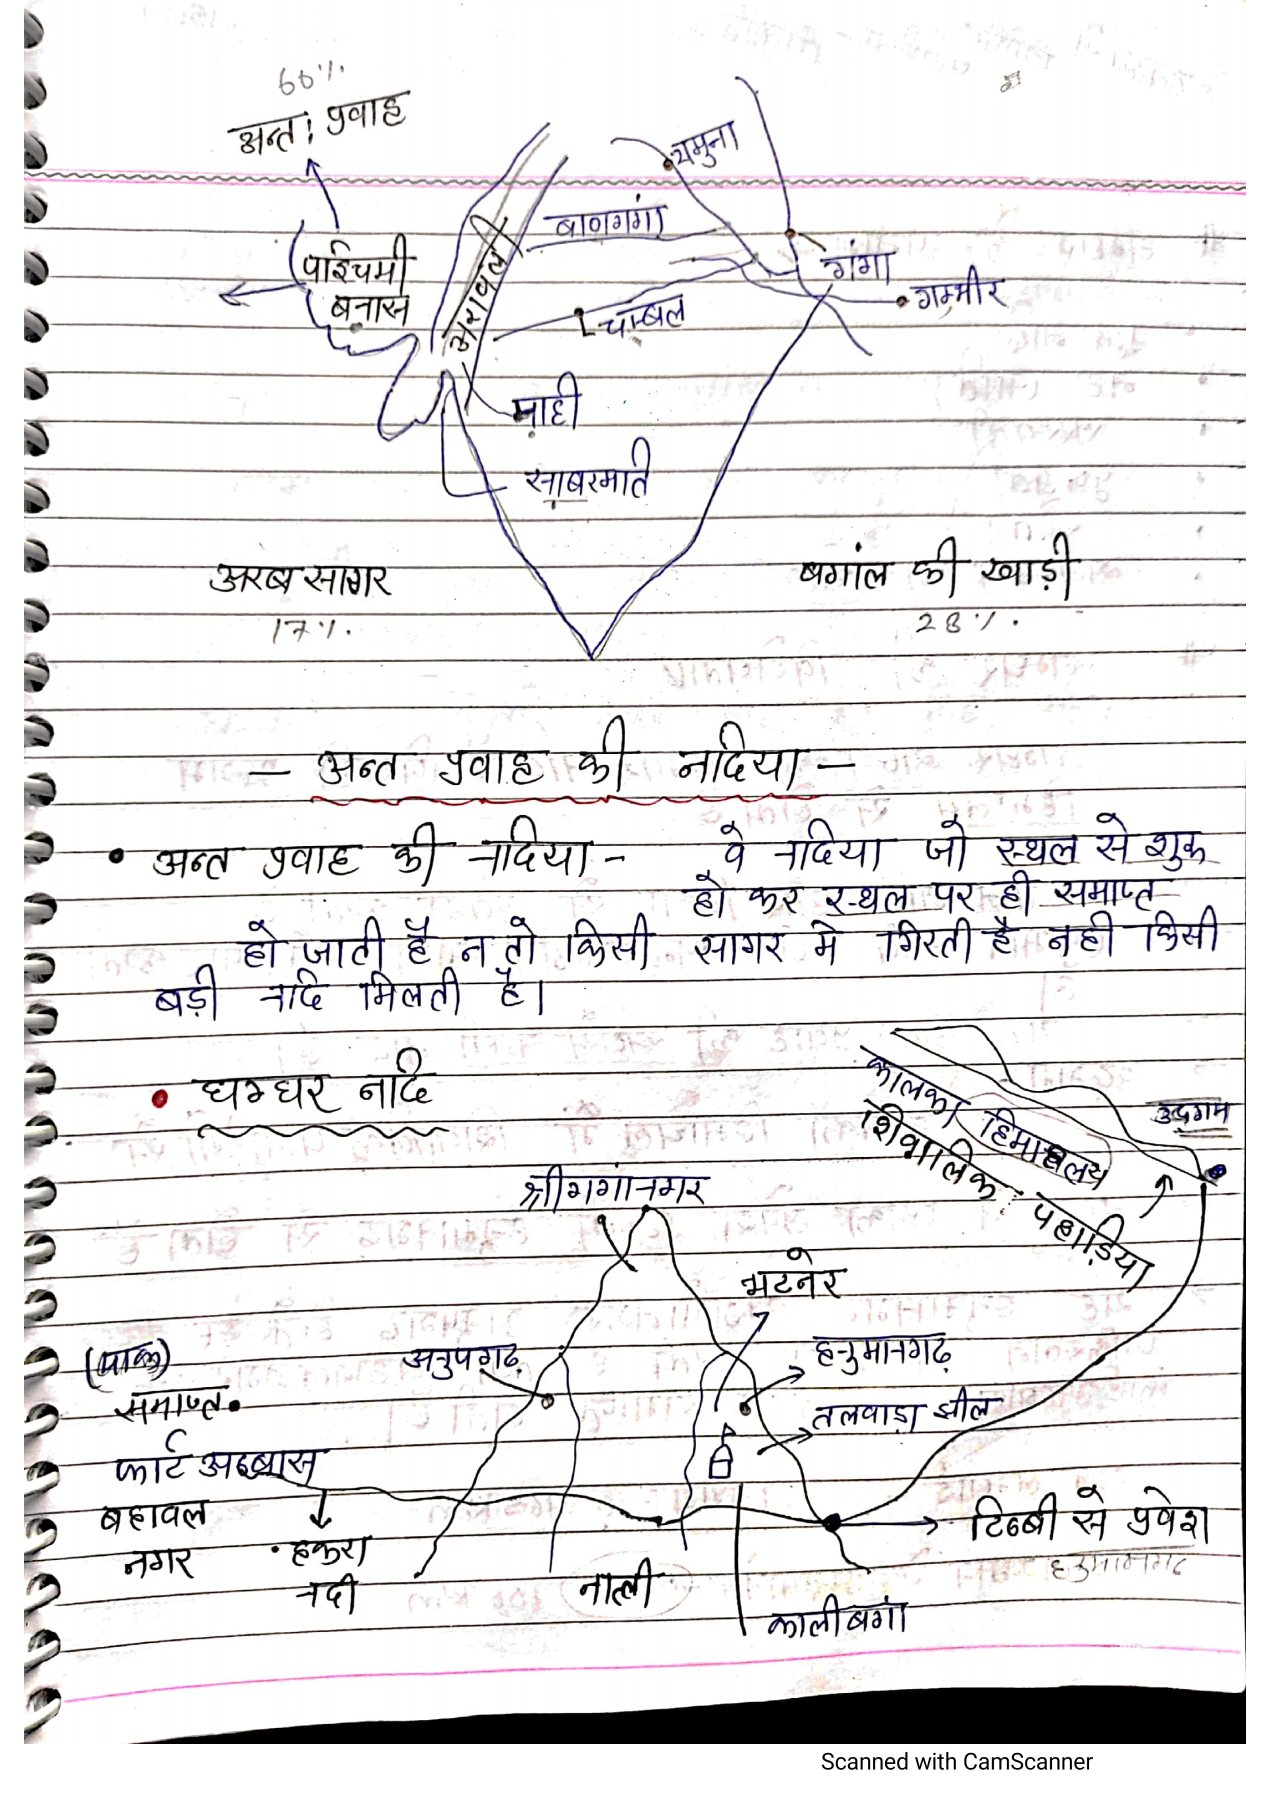 60%
अन्तः प्रवाह
यमुना
बाणगंगा
पश्चिमी
बनास
अरावली
गंगा
गम्भीर
चम्बल
माही
साबरमति
अरब सागर
बगांल की खाड़ी
17%.
23%.
— अन्त प्रवाह की नदिया —
• अन्त प्रवाह की नदिया - वे नदिया जो स्थल से शुरू
हो कर स्थल पर ही समाप्त
हो जाती है न तो किसी सागर मे गिरती है नही किसी
बड़ी नदि मिलती है।
• घग्घर नदि
कालका हिमाचलय
शिवालिक पहाड़िया
उद्गम
श्रीगगांनगर
भटनेर
(पाक)
समाप्त.
अनुपगढ़
हनुमानगढ़
तलवाड़ा झील
फोर्ट अब्बास
बहावल
नगर
• हकरा
नदी
नाली
टिब्बी से प्रवेश
हनुमानगढ
कालीबगां
Scanned with CamScanner